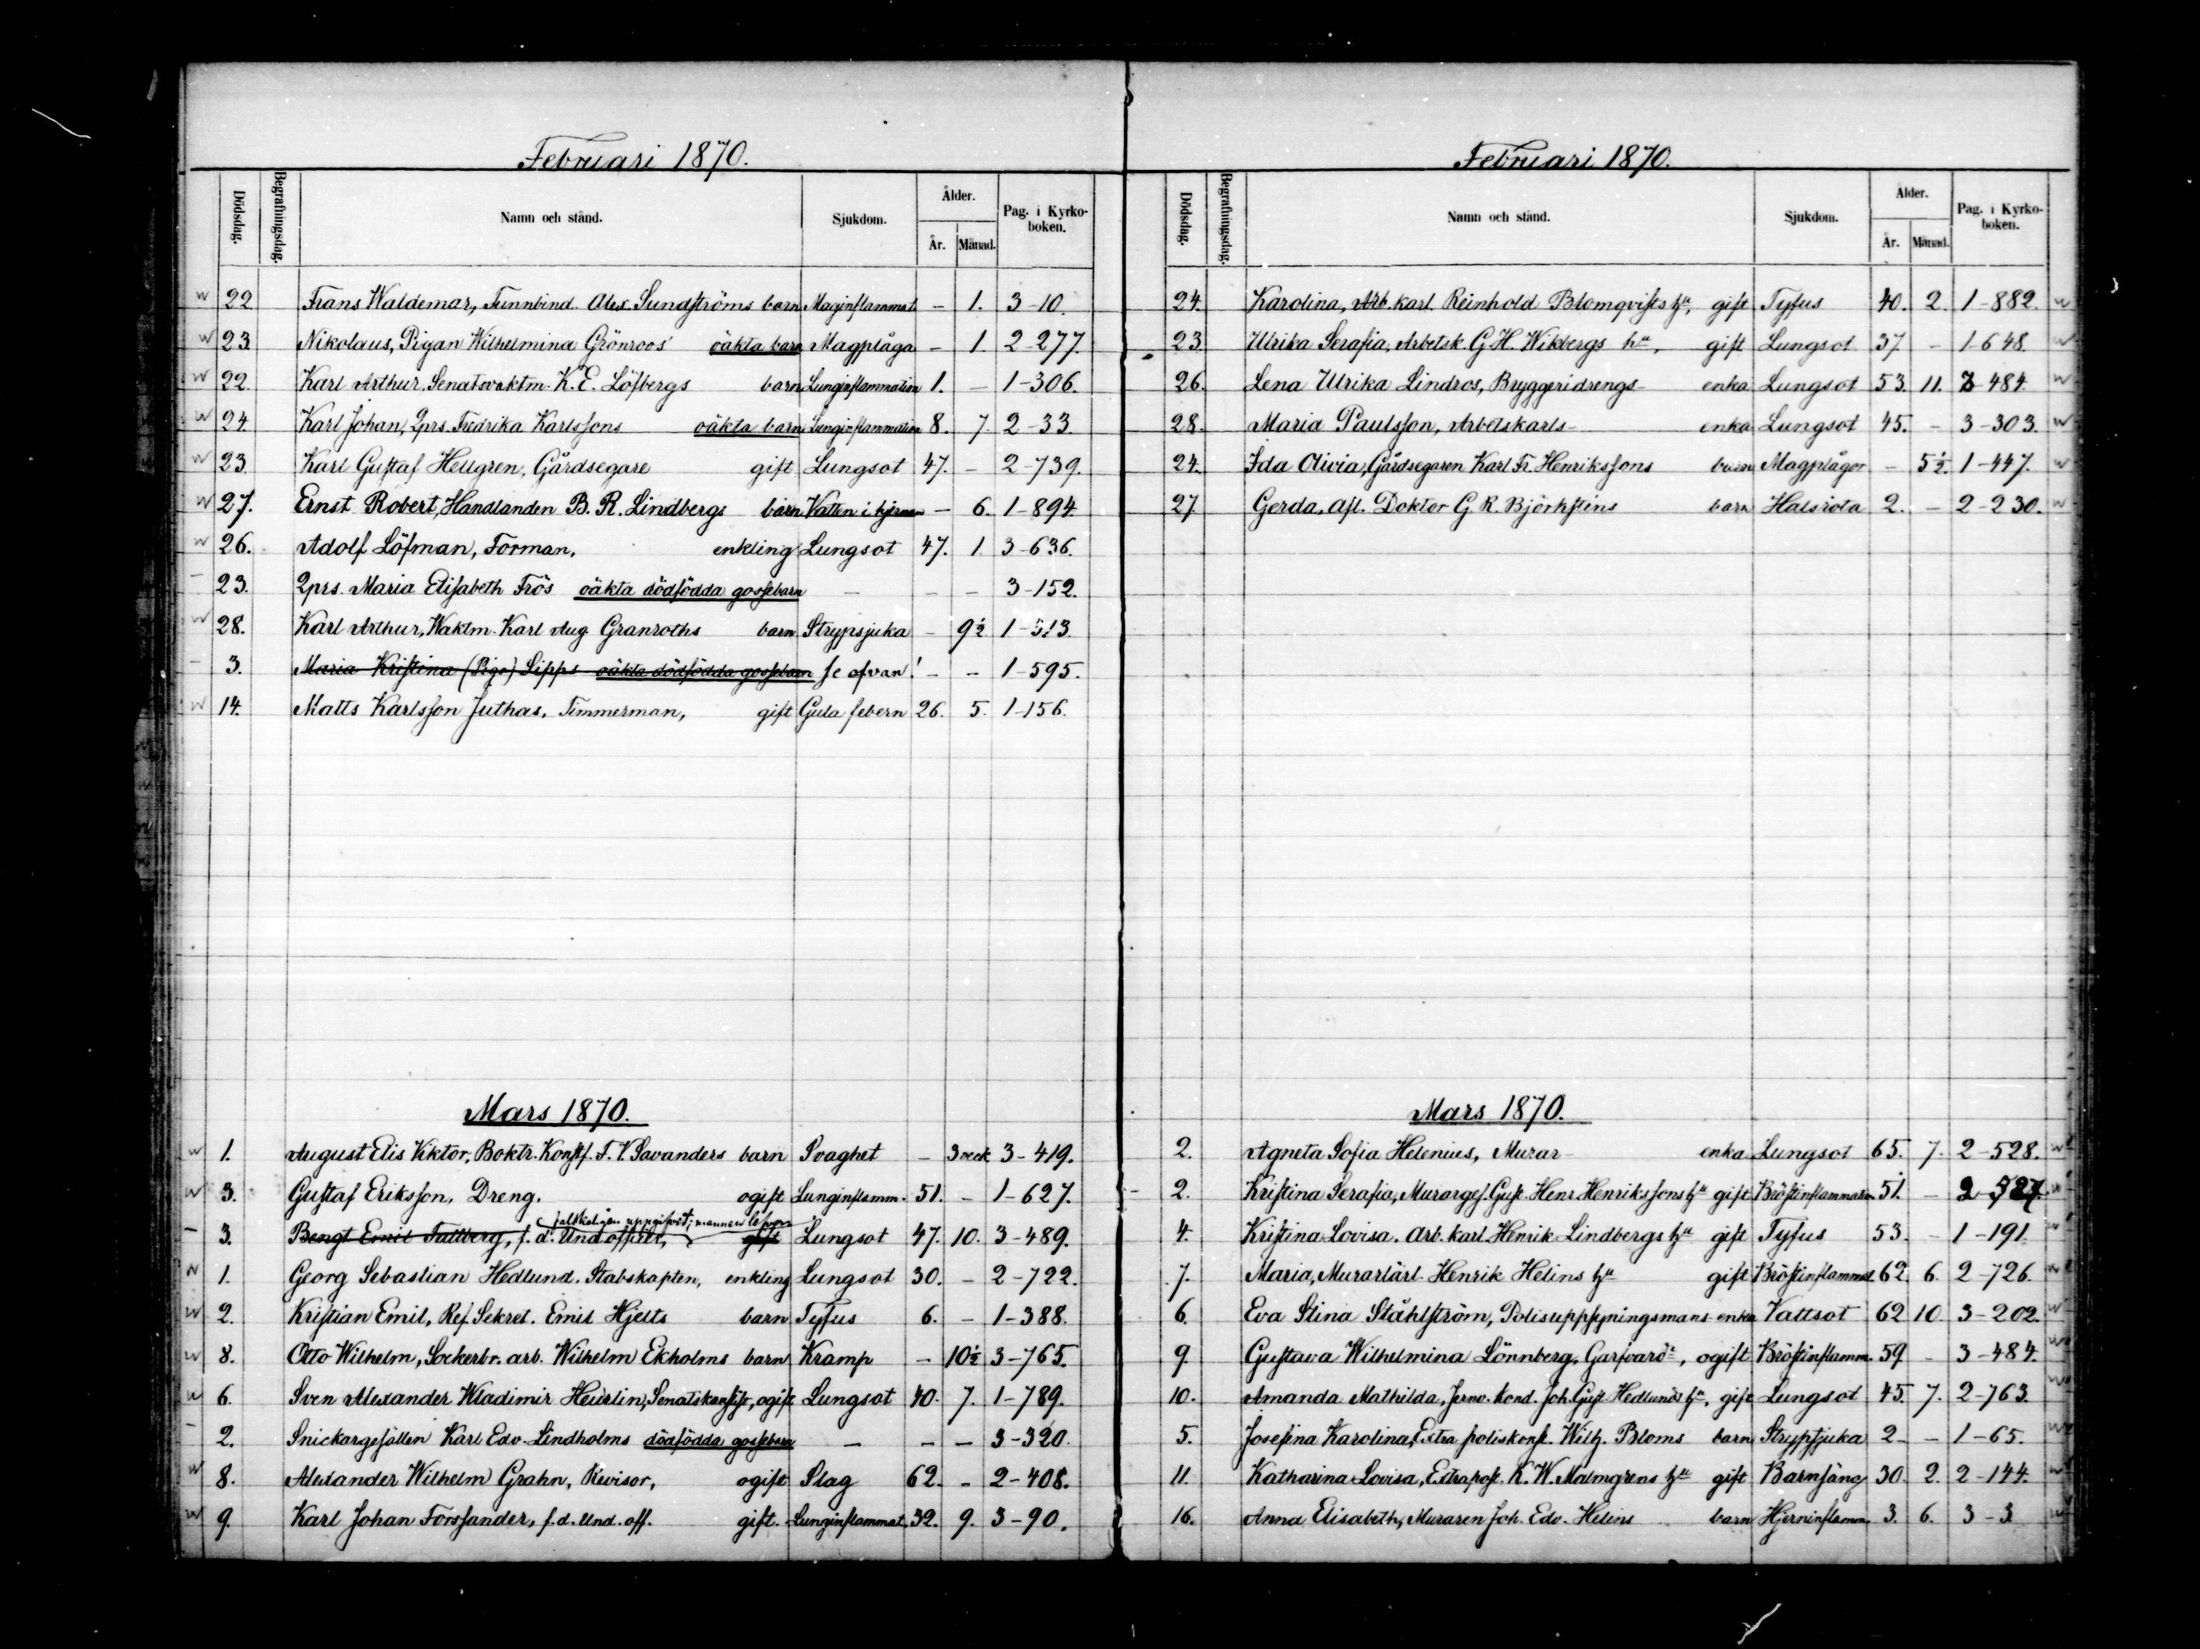 Februari 1870.
Dödsdag. Begrafningsdag. Namn och stånd. Sjukdom. Ålder. År. Månad. Pag. i Kyrkoboken.
22 Frans Waldemar, Tunnbind. Alex. Sundströms barn Maginflammat. – 1. 3–10.
23. Nikolaus, Pigan Wilhelmina Grönroos' oäkta barn Magplåga – 1. 2–277.
22. Karl Arthur, Senatsvaktm. K. E. Löfbergs barn Lunginflammation 1. – 1–306.
24. Karl Johan, Qprs. Fredrika Karlssons oäkta barn Lunginflammation 8. 7. 2–33.
23. Karl Gustaf Hellgren, Gårdsegare gift Lungsot 47. – 2–739.
27. Ernst Robert, Handlanden B. R. Lindbergs barn Vatten i hjernan – 6. 1–894.
26. Adolf Löfman, Forman, enkling Lungsot 47. 1. 3–636.
23. Qprs. Maria Elisabeth Frös oäkta dödfödda gossebarn – – – 3–152.
28. Karl Arthur, Waktm. Karl Aug. Granroths barn Strypsjuka – 9½ 1–513.
3. Maria Kristina (Piga) Sipps oäkta dödfödda gossebarn se ofvan! – – 1–595.
14. Matts Karlsson Juthas, Timmerman, gift Gula febern 26. 5. 1–156.
Mars 1870.
1. August Elis Viktor, Boktr. Konstf. T. V. Savanders barn Svaghet – 3 veck. 3–419.
3. Gustaf Eriksson, Dreng. ogift Lunginflamm. 51. – 1–627.
falskeligen uppgifvet; mannen lefver
3. Bengt Emil Tallberg, f. d. Und.officer, gift Lungsot 47. 10. 3–489.
1. Georg Sebastian Hedlund. Stabskapten, enkling Lungsot 30. – 2–722.
2. Kristian Emil, Ref. Sekret. Emil Hjelts barn Tyfus 6. – 1–388.
8. Otto Wilhelm, Sockerbr. arb. Wilhelm Ekholms barn Kramp – 10½ 3–765.
6. Sven Alexander Wladimir Heurlin, Senatskansist, ogift Lungsot 40. 7. 1–789.
2. Snickargesällen Karl Edv. Lindholms dödfödda gossebarn – – – 3–320.
8. Alexander Wilhelm Grahn, Revisor, ogift Slag 62. – 2–408.
9. Karl Johan Forssander, f. d. Und. off. gift. Lunginflammat. 32. 9. 3–90.
Februari 1870.
Dödsdag. Begrafningsdag. Namn och stånd. Sjukdom. Ålder. År. Månad. Pag. i Kyrkoboken.
24. Karolina, Arb. karl. Reinhold Blomqvists hu, gift Tyfus 40. 2. 1–882.
23. Ulrika Serafia, Arbetsk. G. H. Wikbergs hu, gift Lungsot 37. – 1–648.
26. Lena Ulrika Lindros, Bryggeridrengs– enka Lungsot 53. 11. 3–484.
28. Maria Paulsson, Arbetskarls– enka Lungsot 45. – 3–303.
24. Ida Olivia, Gårdsegaren Karl Fr. Henrikssons barn Magplågor – 5½ 1–447.
27 Gerda, Afl. Doktor G. R. Björkstens barn Halsröta 2. – 2–230.
Mars 1870.
2. Agneta Sofia Helenius, Murar– enka Lungsot 65. 7. 2–528.
2. Kristina Serafia, Murarges. Gust. Henr. Henrikssons hu gift Bröstinflammation 51. –
4. Kristina Lovisa. Arb. karl. Henrik Lindbergs hu gift Tyfus 53. – 1–191.
7. Maria, Murarlärl. Henrik Helins hu gift Bröstinflammat. 62. 6. 2–726.
6. Eva Stina Ståhlström, Polisuppsyningsmans enka Vattsot 62 10. 3–202.
9. Gustava Wilhelmina Lönnberg, ogift Bröstinflamm. 59 – 3–484.
10. Amanda Mathilda, Jernv. kond. Joh. Gust. Hedlunds hu, gift Lungsot 45. 7. 2–763.
5. Josefina Karolina, Extra poliskonst. Wilh. Bloms barn Strypsjuka 2 – 1–65.
11. Katharina Lovisa, K. W. Malmgrens hu gift Barnsäng 30. 2. 2–144.
16. Anna Elisabeth, Muraren Joh. Edv. Helins barn Hjerninflamm. 3. 6. 3–3